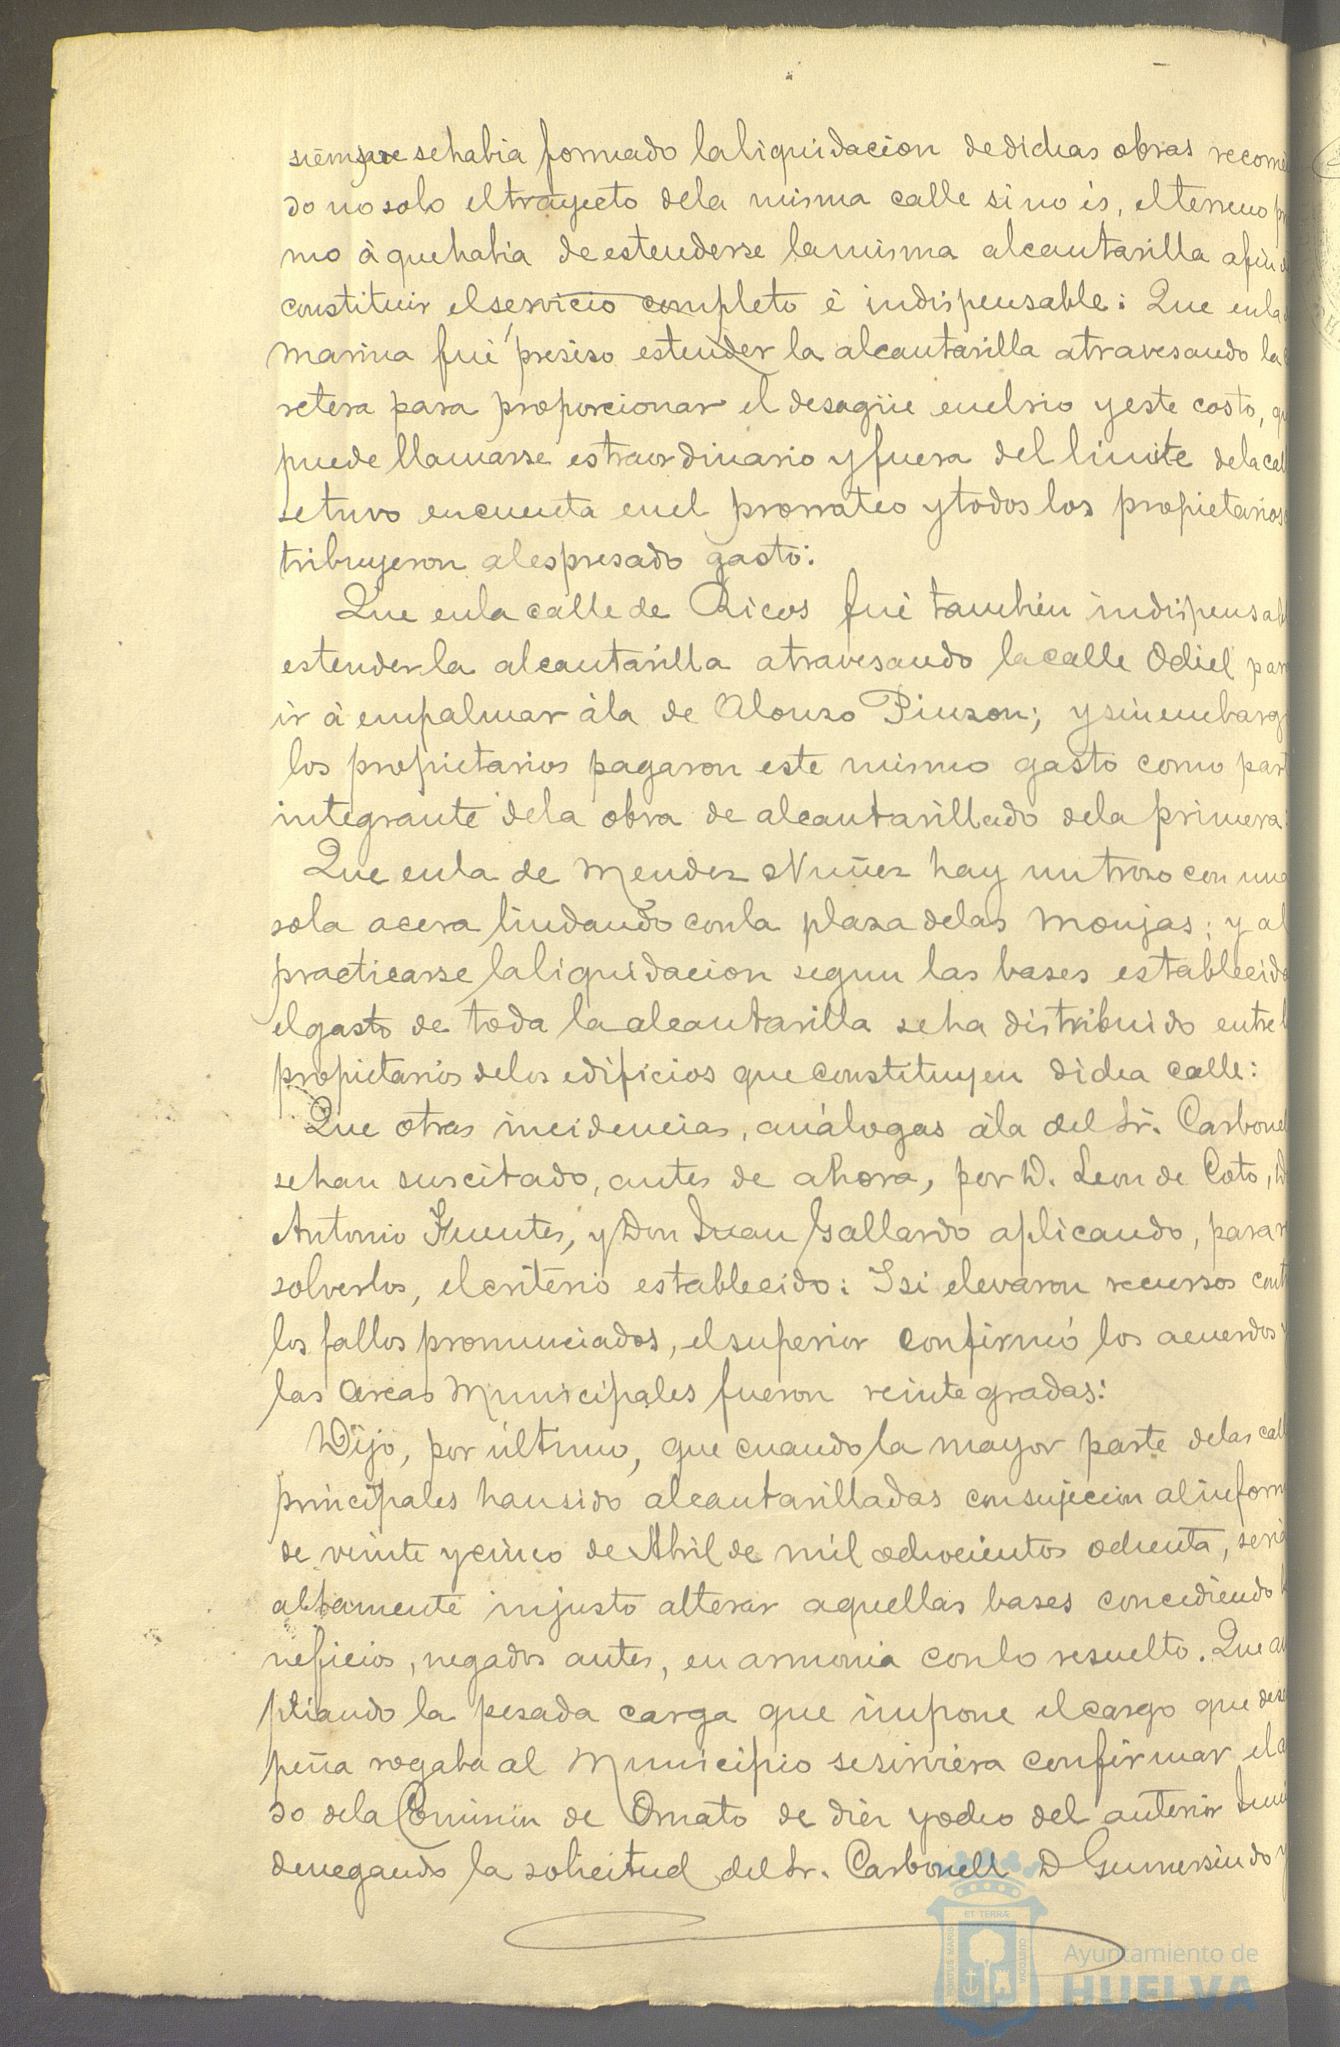 siempre sehabia formado laliquidacion dedichas obras recorri
do no solo eltrayecto dela misma calle si no és, elterreno
mo á quehabia de estenderse lamisma alcantarilla afin
constituir elservicio completo é indispensable: Que enla
marina fué presiso estender la alcantarilla atravesando la
retera para proporcionar el desagüe enelrio y este costo, qu
puede llamarse estraordinario y fuera del limite dela cal
setuvo encuenta enel prorrateo y todos los propietarios
tribuyeron alespresado gasto:
Que enla calle de Ricos fué tambien indispensab
estenderla alcantarilla atravesando lacalle Odiel par
ir á empalmar ála de Alonso Pinzon; y sinembarg
los propietarios pagaron este mismo gasto como part
integrante dela obra de alcantarillado dela primera
Que enla de Mendez Nuñez hay un troso con una
sola acera lindando conla plaza delas Monjas; y al
practicarse laliquidacion segun las bases establecida
elgasto de toda la alcantarilla seha distribuido entre l
propietarios delos edificios que constituyen dicha calle:
Que otras incidencias, análogas ála del Sr. Carbonel
sehan suscitado, antes de ahora, por D. Leon de Coto, D
Antonio Fuentes, y Don Juan Gallardo aplicando, para r
solverlos, elcriterio establecido: I si elevaron recursos cont
los fallos pronunciados, elsuperior confirmó los acuerdos y
las arcas Municipales fueron reintegradas:
Dijo, por último, que cuando la mayor parte delas call
principales hansido alcantarilladas consujecion alinform
de veinte y cinco de Abril de mil ochocientos ochenta, seria
altamente injusto alterar aquellas bases concediendo
neficios, negados antes, en armonia conlo resuelto. Que
pliando la pesada carga que impone elcargo que dese
peña rogaba al Municipio sesirviera confirmar el a
do dela Comision de Ornato de diez y ocho del anterior Juni
denegando la solicitud del Sr. Carbonell D Gumersindo y
ET TERRÆ
PORTUS MARIS
CUSTODIA
Ayuntamiento de
HUELVA